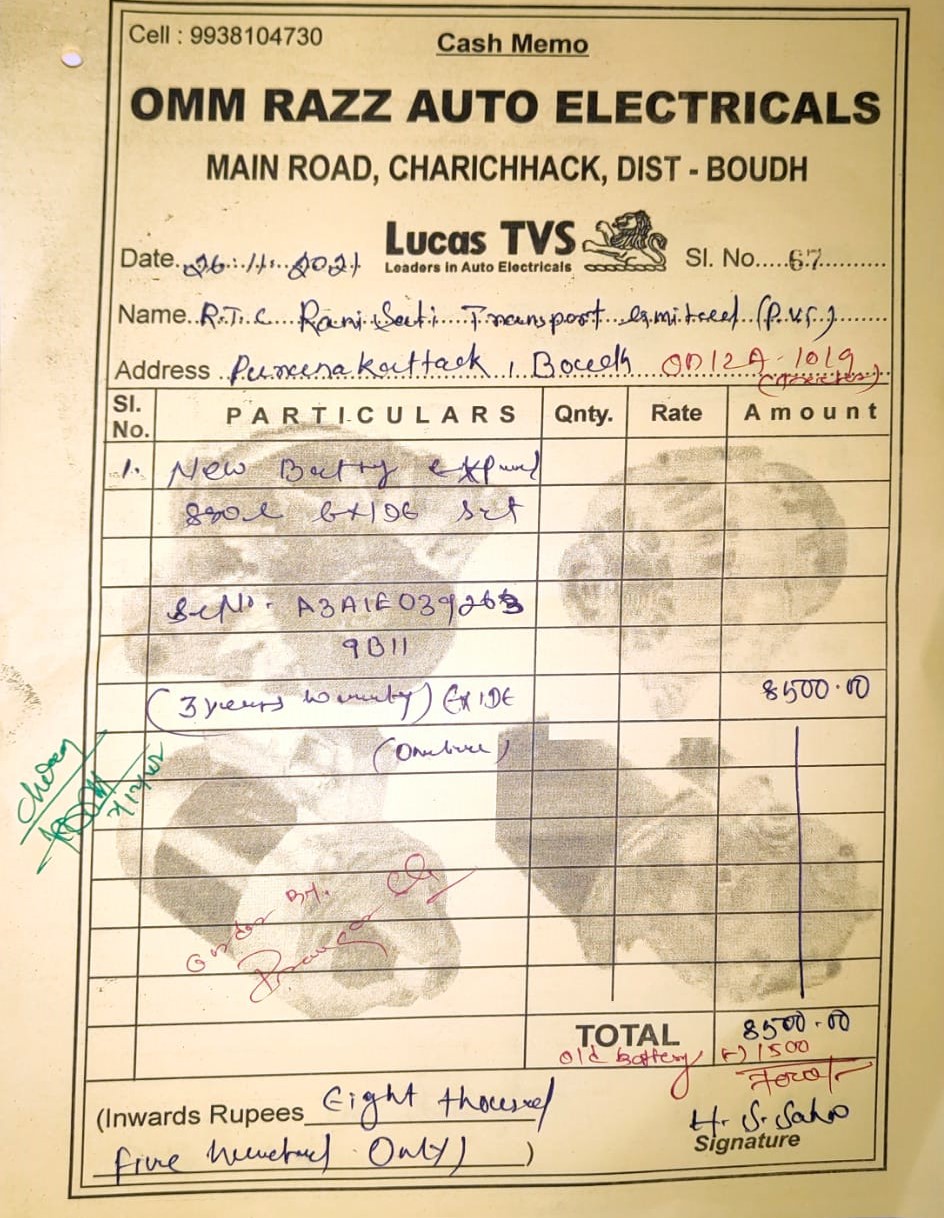 Cell : 9938104730
Cash Memo
OMM RAZZ AUTO ELECTRICALS
MAIN ROAD, CHARICHHACK, DIST - BOUDH
Lucas TVS
Leaders in Auto Electricals
Date 26.11.2021 Sl. No. 67
Name R.T.C Rani Sati Transport (P.V.T.)
Address Purunakattack, Boudh OD12A-1019
Sl. No. PARTICULARS Qnty. Rate Amount
1. New
set
A3A1E039263
9B11
(3 years warranty) EXIDE 8500.00
TOTAL 8500.00
Old battery (-) 1500
(Inwards Rupees Eight thousand
five hundred Only) )
H. S. Sahoo
Signature